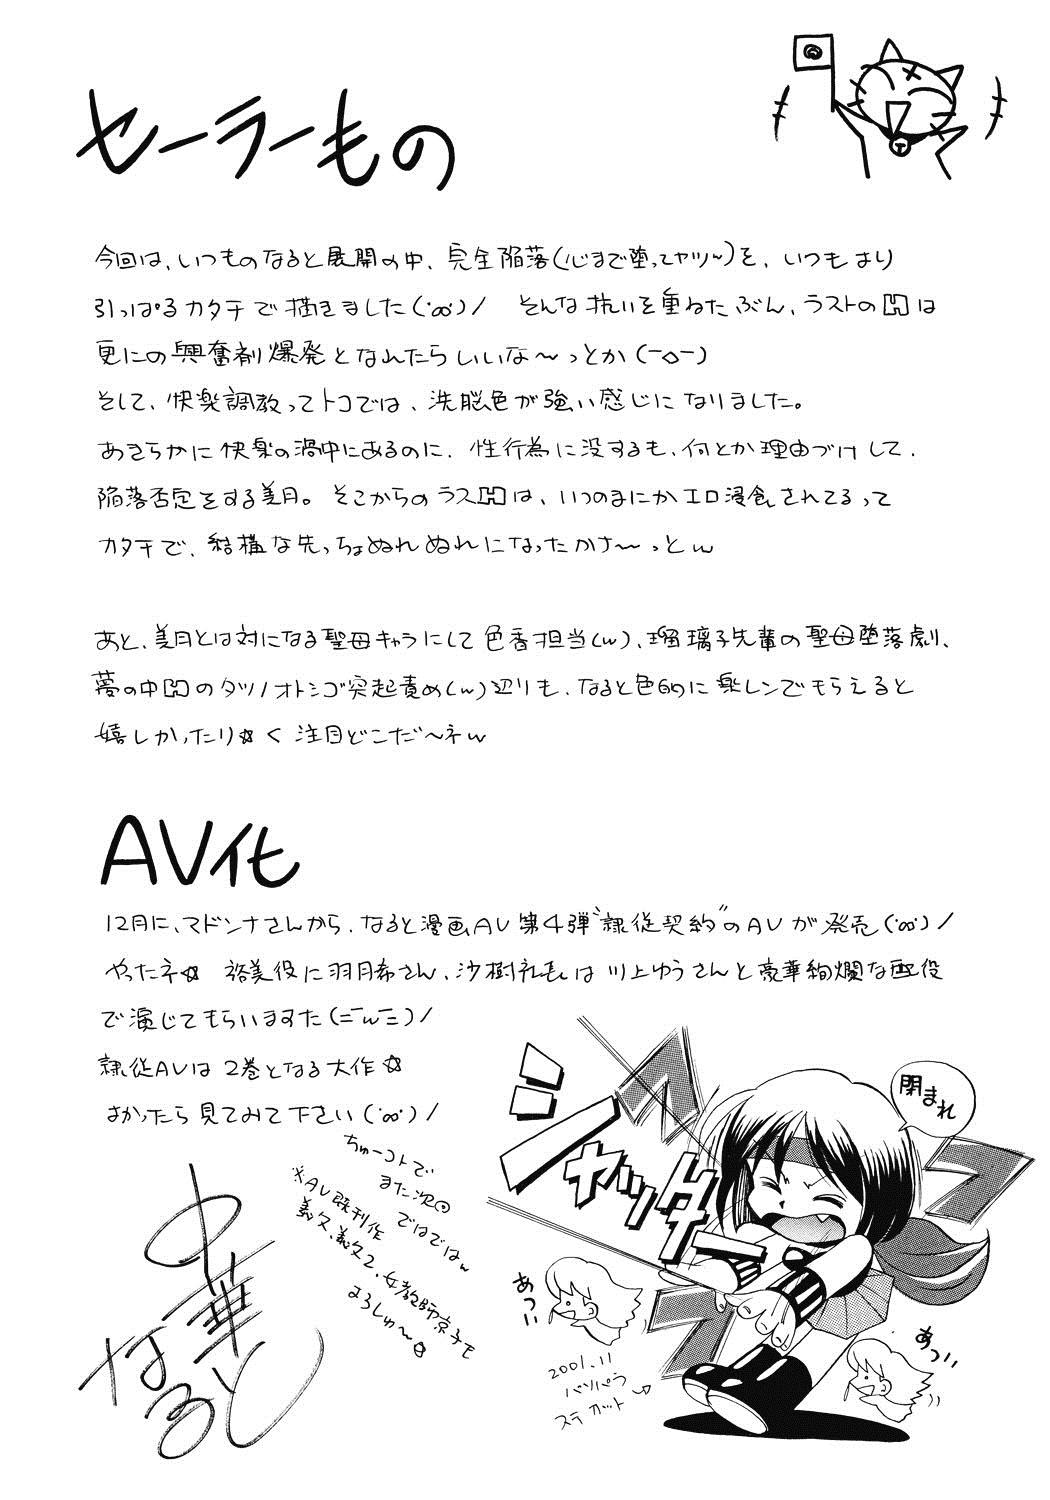 セーラーもの
今回は、いつものなると展開の中、完全陥落(心まで堕ってヤツ~)を、いつもより
引っぱるカタチで描きました(˙ꝏ˙)/ そんな抗いを重ねたぶん、ラストのHは
更にの興奮剤爆発となれたらいいな〜っとか(ー◇ー)
そして、快楽調教ってトコでは、洗脳色が強い感じになりました。
あきらかに快楽の渦中にあるのに、性行為に没するも、何とか理由づけして、
陥落否定をする美月。そこからのラスHは、いつのまにかエロ浸食されてるって
カタチで、結構な先っちょぬれぬれになったかさ〜っとw
あと、美月とは対になる聖母キャラにして色香担当(w)、瑠璃子先輩の聖母堕落劇、
夢の中Hのタツノオトシゴ突起責め(w)辺りも、なると色的に楽しンでもらえると
嬉しかったり☆く 注目どこだ〜ネw
AV化
12月に、マドンナさんから、なると漫画AV第4弾"隷従契約"のAVが発売(˙ꝏ˙)/
やったネ☆ 裕美役に羽月希さん、沙樹礼
は川上ゆうさんと豪華絢爛な配役
で演じてもらいますた(=ーwー=)/
隷従AVは2巻となる大作☆
よかったら見てみて下さい(˙ꝏ˙)/
ちゅーコトで
また次回
ではではw
※AV既刊作
義父、義父2、女教師京子も
よろしゅ〜☆
中華なると
シャッター
閉まれ
あつ
あつ
2001.11
バソパラ
ステカット